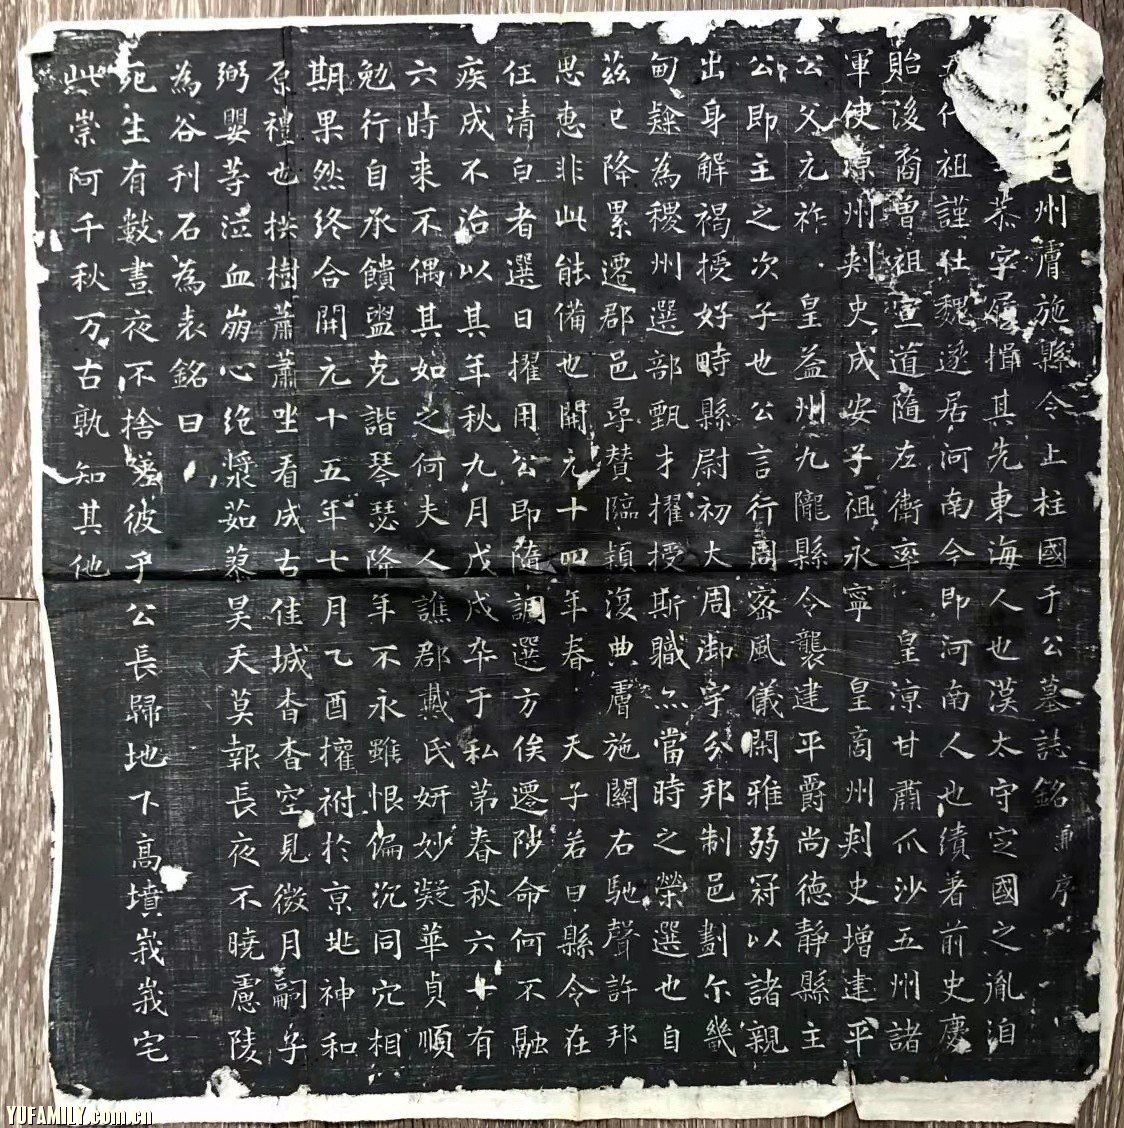 州膚施縣令上柱國于公墓誌銘并序
恭字履揖其先東海人也漢太守定國之胤洎
代祖謹仕魏遂居河南今即河南人也績著前史慶
貽後裔曾祖宣道隨左衛率皇涼甘肅爪沙五州諸
軍使涼州刾史成安子祖永寧皇商州刾史增建平
公父元祚皇益州九隴縣令襲建平爵尚德靜縣主
公即主之次子也公言行周密風儀閑雅弱冠以諸親
出身解褐授好畤縣尉初大周御宇分邦制邑劃尓畿
甸肄為稷州選部甄才擢授斯職亦當時之榮選也自
茲已降累遷郡邑尋贊臨潁復典膚施關右馳聲許邦
思惠非此能備也開元十四年春天子若曰縣令在
任清白者選日擢用公即隨調選方俟遷陟命何不融
疾成不治以其年秋九月戊戌卒于私第春秋六十有
六時来不偶其如之何夫人譙郡戴氏妍妙凝華貞順
勉行自承饋盥克諧琴瑟降年不永雖恨偏沉同穴相
期果然終合開元十五年七月乙酉權祔於京兆神和
原禮也拱樹蕭蕭坐看成古佳城杳杳空見微月嗣子
弼嬰等泣血崩心絶漿茹蓼昊天莫報長夜不曉慮陵
為谷刊石為表銘曰
死生有數晝夜不捨嗟彼于公長歸地下高墳峩峩宅
此崇阿千秋万古孰知其他
YUFAMILY.com.cn